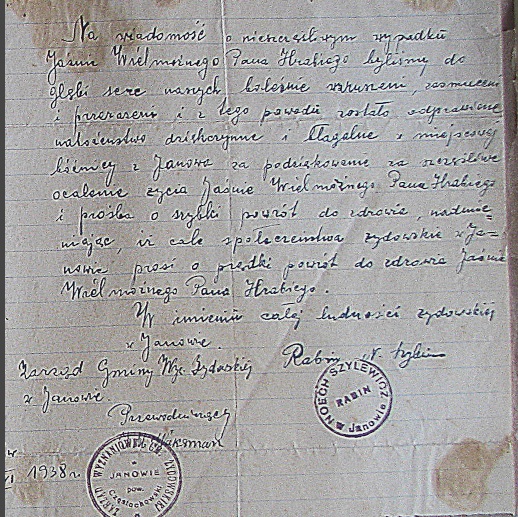 Na wiadomość o nieszczęśliwym wypadku
Jaśnie Wielmożnego Pana Hrabiego byliśmy do
głębi serc naszych boleśnie wzruszeni, zasmuceni
i przerażeni i z tego powodu zostało odprawione
nabożeństwo dziękczynne i błagalne w miejscowej
bóżnicy z Janowa za podziękowanie za szczęśliwe
ocalenie życia Jaśnie Wielmożnego Pana Hrabiego
i prośba o szybki powrót do zdrowia, nadmie-
niając, iż całe społeczeństwo żydowskie w Ja-
nowie prosi o prędki powrót do zdrowia Jaśnie
Wielmożnego Pana Hrabiego.
W imieniu całej ludności żydowskiej
w Janowie.
Zarząd Gminy Wyz. Żydowskiej
w Janowie.
Rabin N.
NOECH SZYLEWICZ
RABIN
w Janowie
Przewodniczący
Waksman
1938 r.
ZARZĄD WYZNANIOWEJ GM. ŻYDOWSKIEJ
w
JANOWIE
pow.
Częstochowski